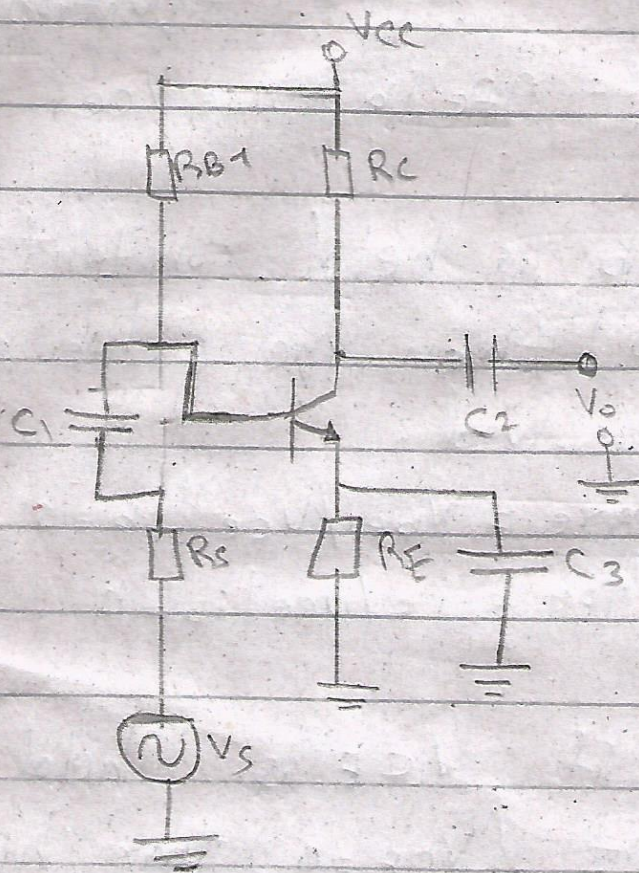 Vcc
RB1
RC
C1
C2
Vo
RS
RE
C3
VS